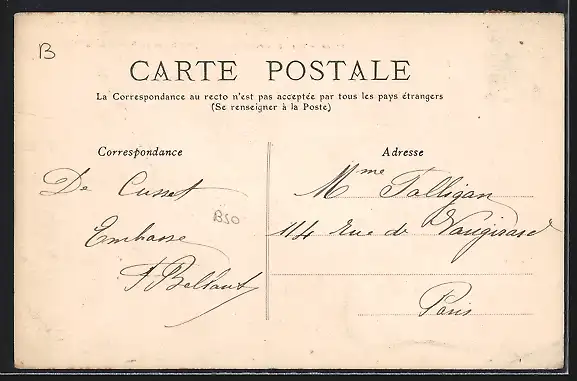 B
CARTE POSTALE
La Correspondance au recto n'est pas acceptée par tous les pays étrangers
(Se renseigner à la Poste)
Correspondance
Adresse
De Cusset
B50
Embasse
Mme Talligan
114 Rue de Vaugirard
Paris